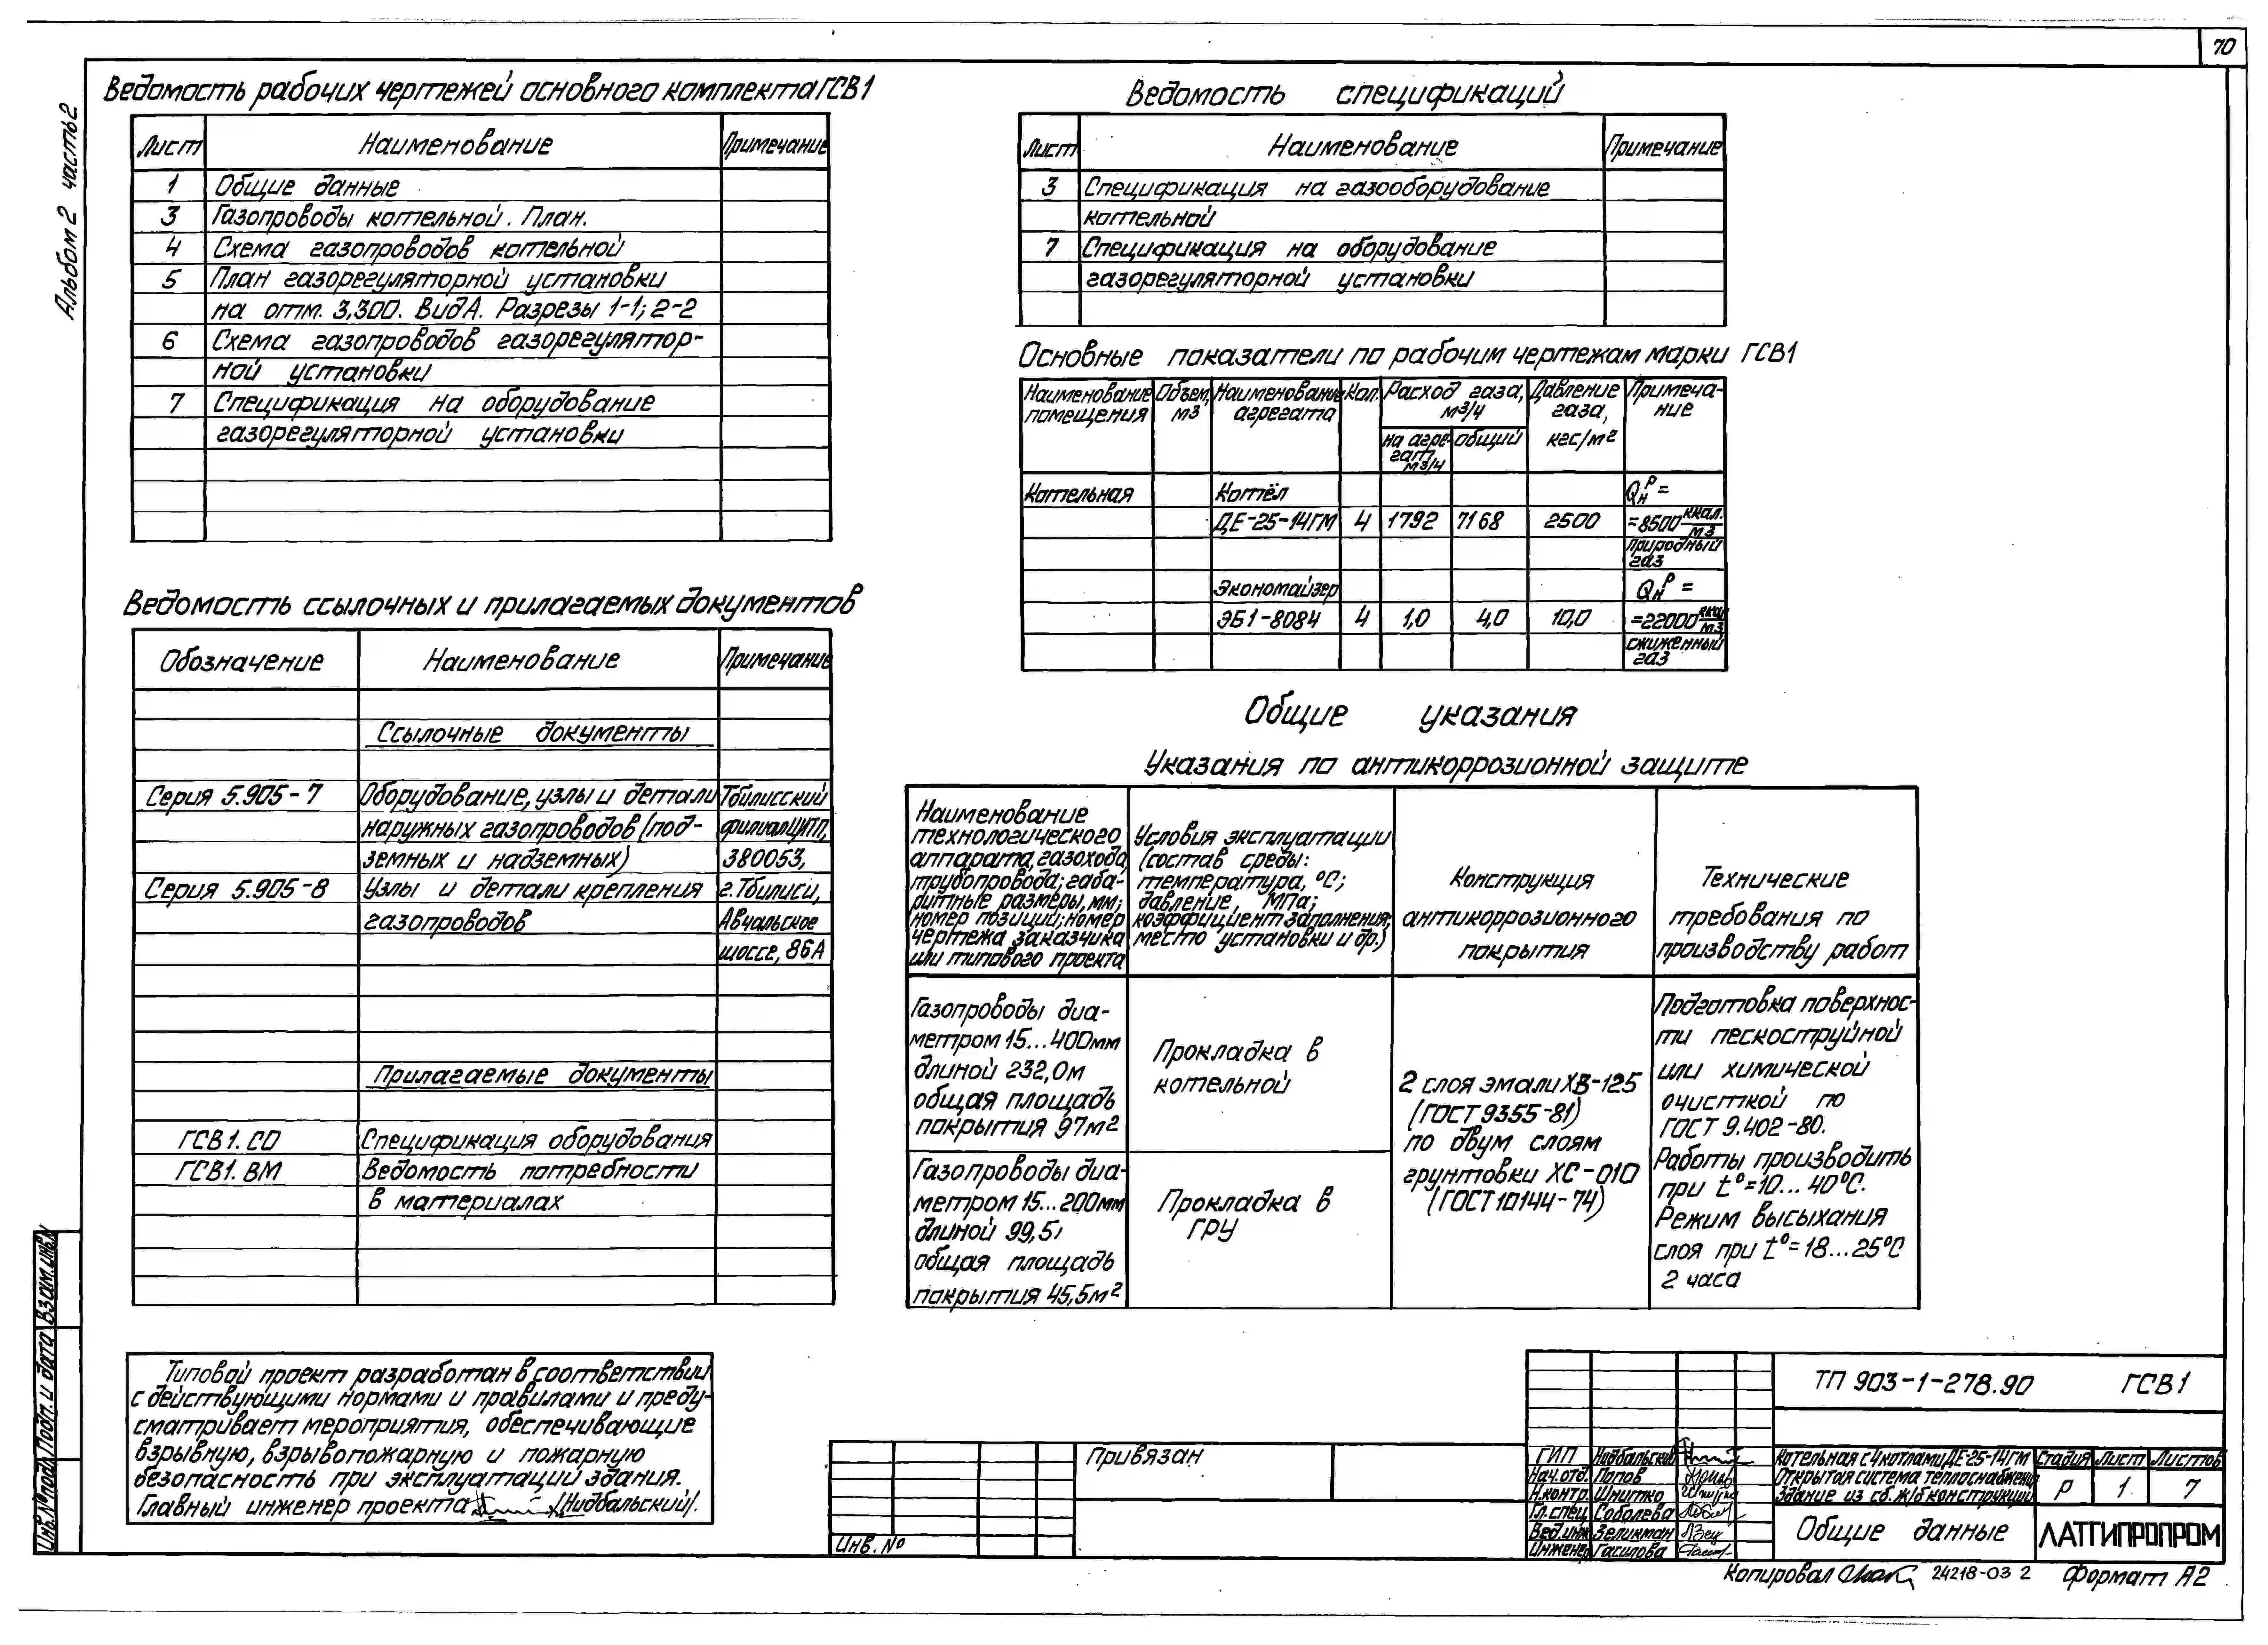 70
Альбом 2 часть 2
Ведомость рабочих чертежей основного комплекта ГСВ1
Лист Наименование Примечание
1 Общие данные
3 Газопроводы котельной. План.
4 Схема газопроводов котельной
5 План газорегуляторной установки
на отм. 3,300. Вид А. Разрезы 1-1; 2-2
6 Схема газопроводов газорегулятор-
ной установки
7 Спецификация на оборудование
газорегуляторной установки
Ведомость ссылочных и прилагаемых документов
Обозначение Наименование Примечание
Ссылочные документы
Серия 5.905-7 Оборудование, узлы и детали Тбилисский
наружных газопроводов (под- филиал ЦИТП,
земных и надземных) 380053,
Серия 5.905-8 Узлы и детали крепления г. Тбилиси,
газопроводов Авчальское
шоссе, 86А
Прилагаемые документы
ГСВ1. СО Спецификация оборудования
ГСВ1. ВМ Ведомость потребности
в материалах
Типовой проект разработан в соответствии
с действующими нормами и правилами и преду-
сматривает мероприятия, обеспечивающие
взрывную, взрывопожарную и пожарную
безопасность при эксплуатации здания.
Главный инженер проекта /Нидбальский/.
Ведомость спецификаций
Лист Наименование Примечание
3 Спецификация на газооборудование
котельной
7 Спецификация на оборудование
газорегуляторной установки
Основные показатели по рабочим чертежам марки ГСВ1
Наименование помещения Объем, м3 Наименование агрегата Кол. Расход газа, м3/ч Давление газа, кгс/м2 Примеча-
ние
на агре-
гат, м3/ч общий
Котельная Котёл Qнр =
ДЕ-25-14ГМ 4 1792 7168 2500 =8500 ккал./м3
природный
газ
Экономайзер Qнр =
ЭБ1-808И 4 1,0 4,0 10,0 =22000 ккал/м3
сжиженный
газ
Общие указания
Указания по антикоррозионной защите
Наименование
технологического
аппарата, газохода,
трубопровода; габа-
ритные размеры, мм;
номер позиций; номер
чертежа заказчика
или типового проекта
Условия эксплуатации
(состав среды:
температура, °С;
давление, МПа;
коэффициент заполнения;
место установки и др.)
Конструкция
антикоррозионного
покрытия
Технические
требования по
производству работ
Газопроводы диа-
метром 15...400мм
длиной 232,0м
общая площадь
покрытия 97м2
Прокладка в
котельной
2 слоя эмали ХВ-125
(ГОСТ 9355-81)
по двум слоям
грунтовки ХС-010
(ГОСТ 10144-74)
Подготовка поверхнос-
ти пескоструйной
или химической
очисткой по
ГОСТ 9.402-80.
Работы производить
при t°=10...40°С.
Режим высыхания
слоя при t°=18...25°С
2 часа
Газопроводы диа-
метром 15...200мм
длиной 99,5
общая площадь
покрытия 45,5м2
Прокладка в
ГРУ
Инв.№подл. Подп. и дата Взам.инв.№
Привязан
Инв. №
ТП 903-1-278.90 ГСВ1
ГИП Нидбальский
Нач.отд. Попов
Н.контр. Шнитко
Гл.спец. Соболева
Вед.инж. Зеликман
Инженер Гасилова
Котельная с 4 котлами ДЕ-25-14ГМ
Открытая система теплоснабжения
Здание из сб. ж/б конструкций
Стадия Лист Листов
Р 1 7
Общие данные
ЛАТГИПРОПРОМ
Копировал 24218-03 2 Формат А2